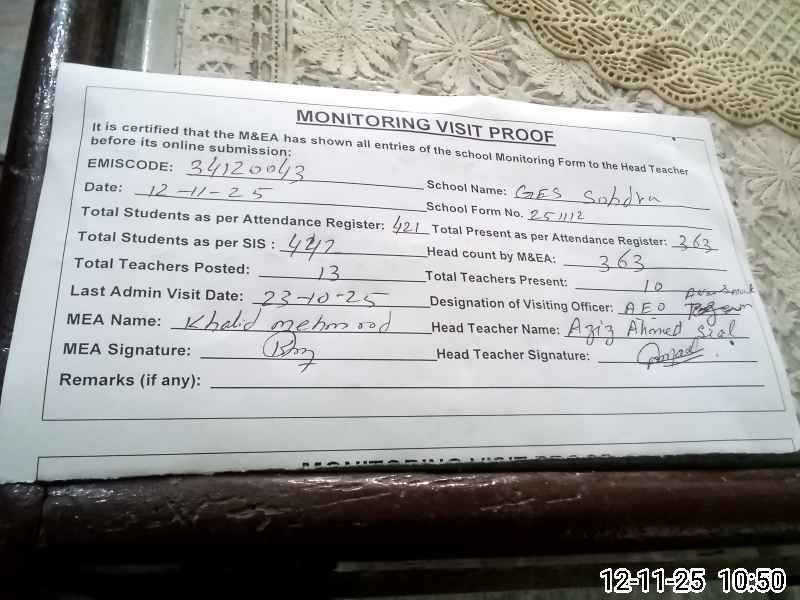 MONITORING VISIT PROOF
It is certified that the M&EA has shown all entries of the school Monitoring Form to the Head Teacher
before its online submission:
EMISCODE: 34120043 School Name: GES Sohdra
Date: 12-11-25 School Form No. 251112
Total Students as per Attendance Register: 421 Total Present as per Attendance Register: 363
Total Students as per SIS : Head count by M&EA: 363
Total Teachers Posted: 13 Total Teachers Present: 10
Last Admin Visit Date: 23-10-25 Designation of Visiting Officer: AEO
MEA Name: Khalid mehmood Head Teacher Name: Aziz Ahmed Sial
MEA Signature: Head Teacher Signature:
Remarks (if any):
MONITORING VISIT PROOF
12-11-25 10:50